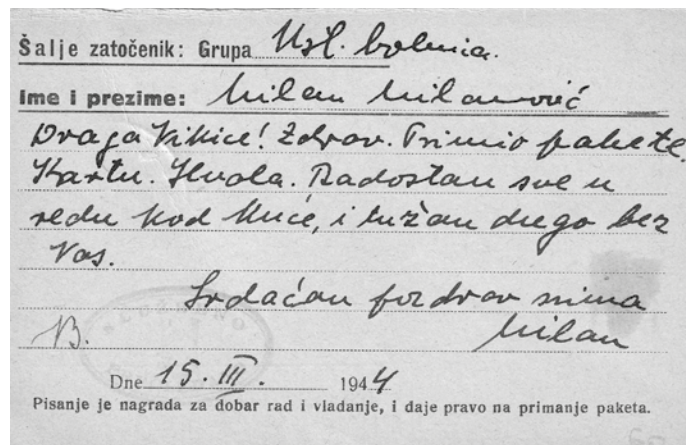 Šalje zatočenik: Grupa Usl. bolnica.
Ime i prezime: Milan Milanović
Draga Kikice! Zdrav. Primio pakete.
Kartu. Hvala. Radostan sve u
redu kod kuće, i tužan dugo bez
Vas.
Srdačan pozdrav svima
B. Milan
Dne 15. III. 1944
Pisanje je nagrada za dobar rad i vladanje, i daje pravo na primanje paketa.